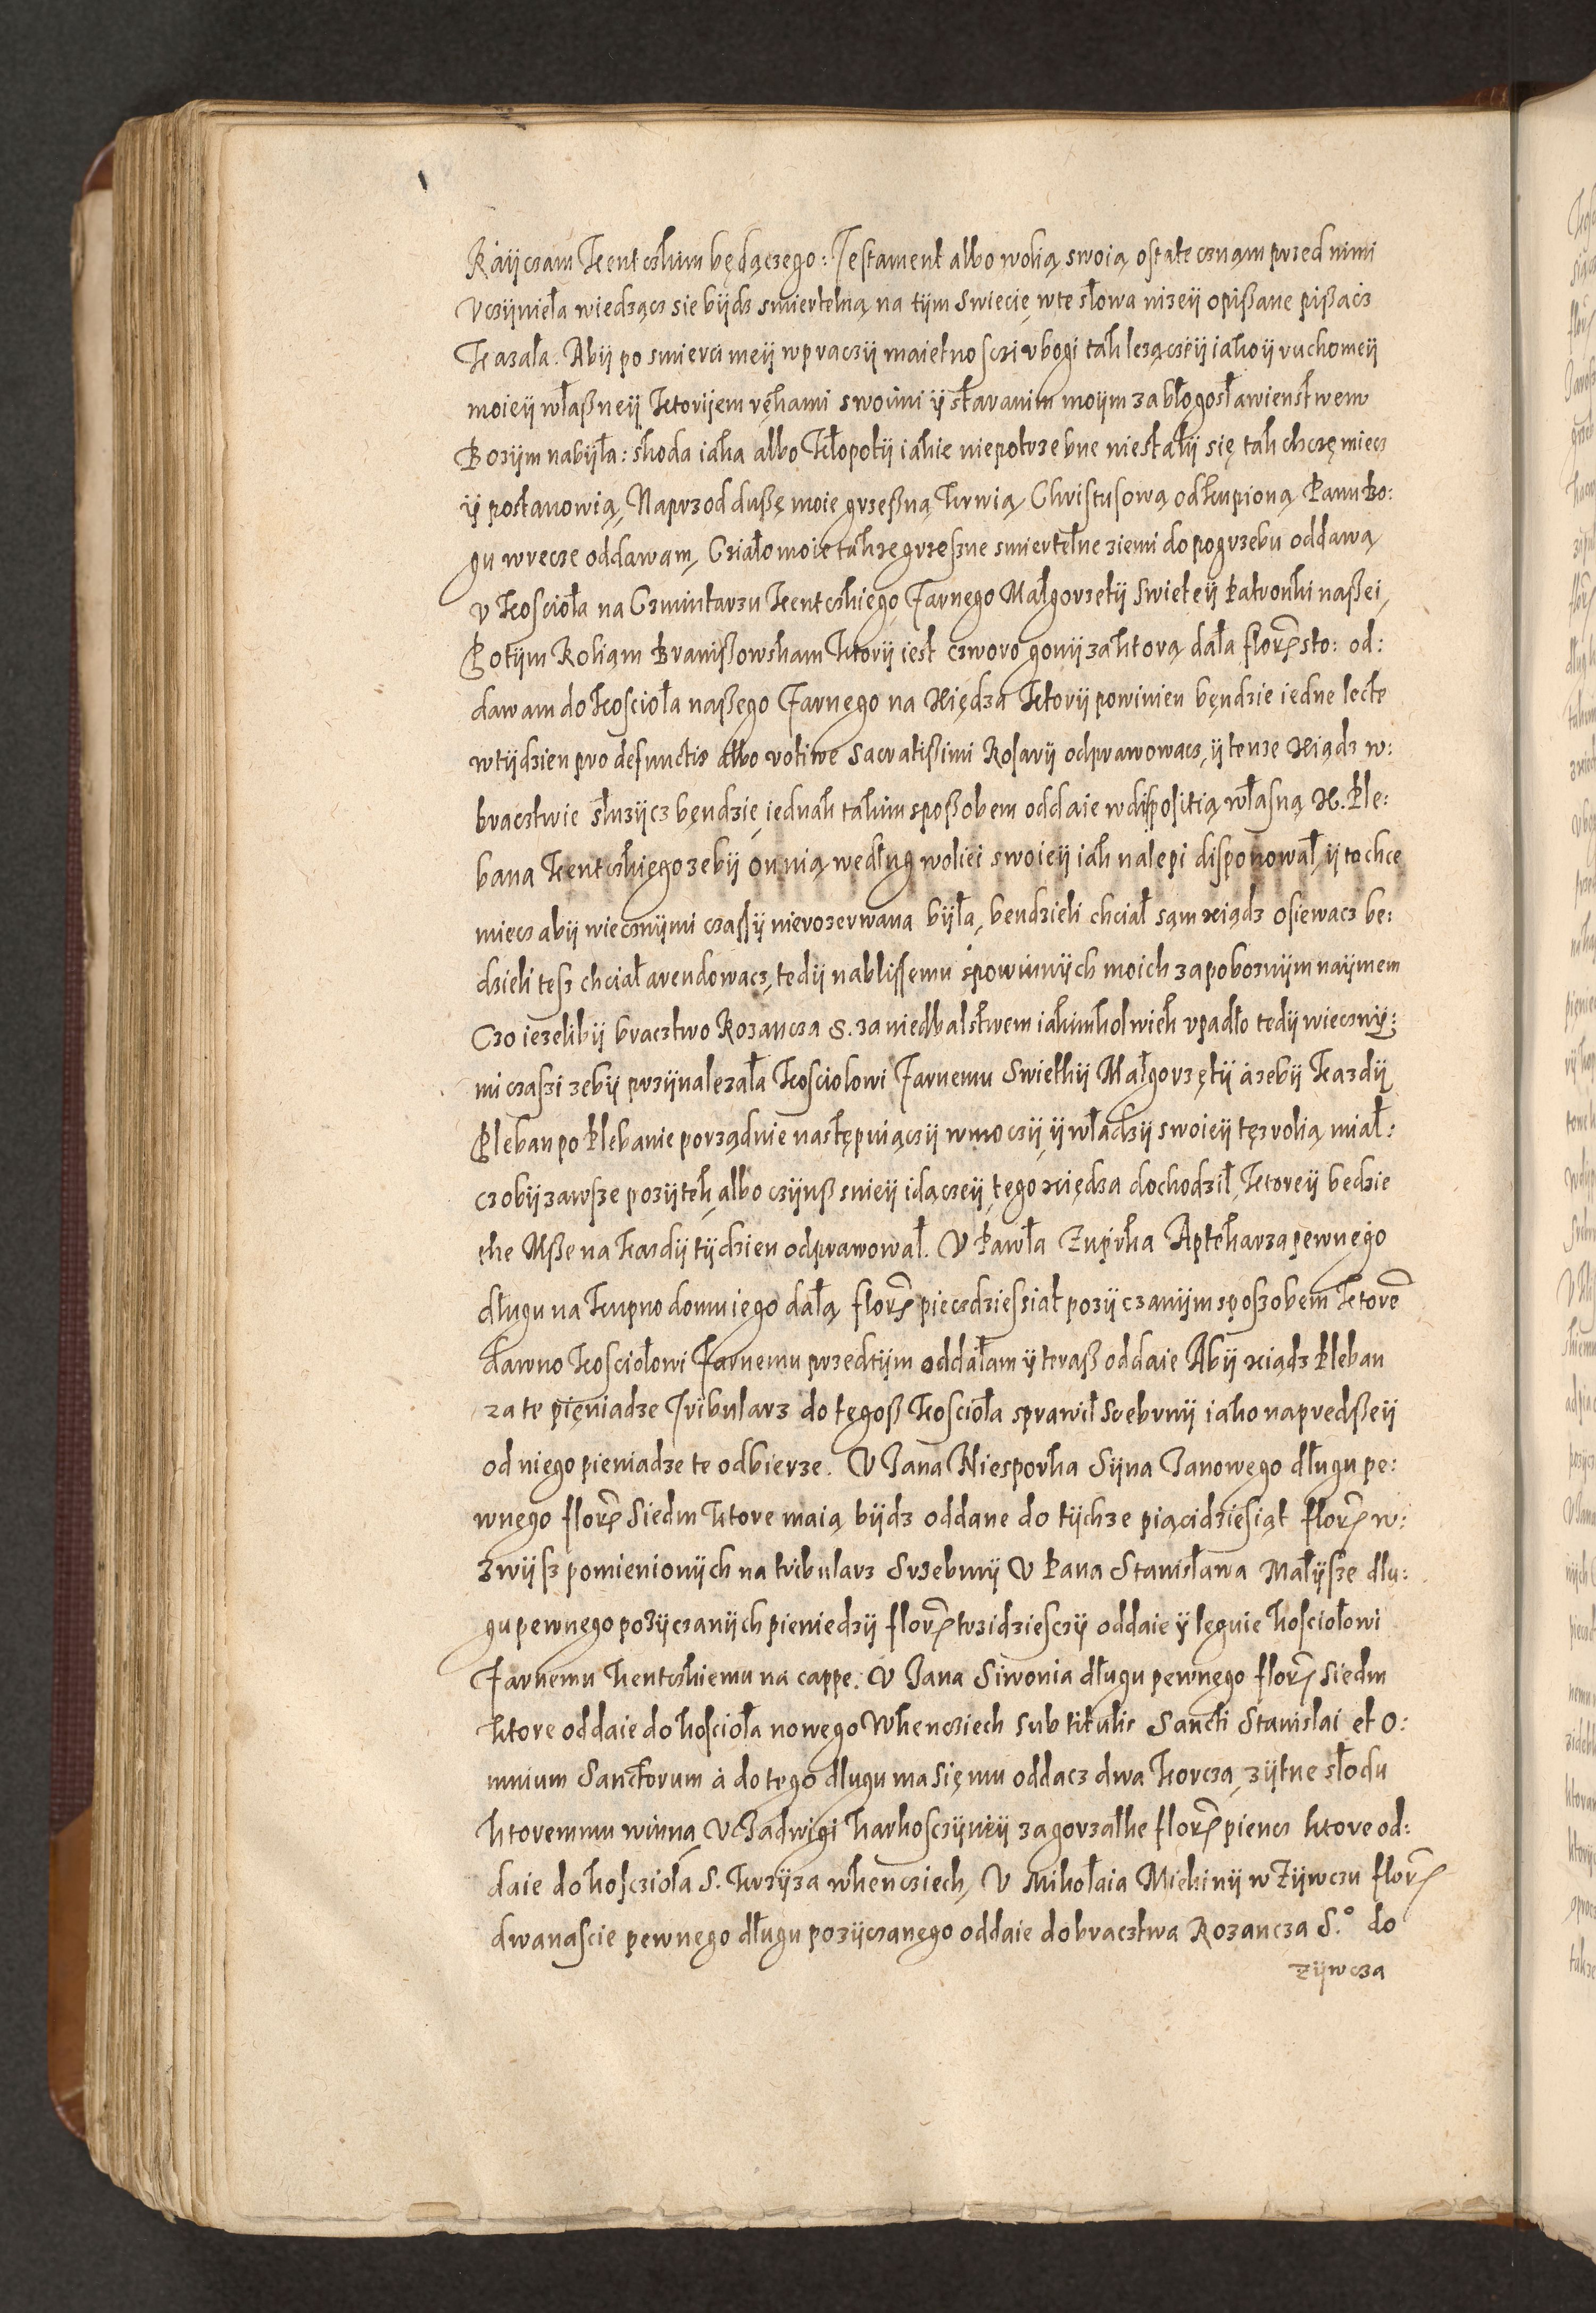 Raijczam Kentczkim będączego: Testament albo wolią swoią ostatecznąm przed nimi
Uczijniela wiedzącz sie bijdz smiertelną na tijm Swiecię wte słowa nizeij opißane pißacz
Kazala. Abij po smierci meij wpraczij maietnosczi vbogi tak lezączeij iakoij ruchomeij
moieij własneij Ktorijem rękami swoimi ij staranim moijm za błogosławienstwem
Bozijm nabijła: skoda iaka albo Kłopotij iakie niepotrzebne niestałij się tak chczę miecz
ij postanowią, Naprzod dußę moie grzeßną Krwią Christusową odkupioną Panu Bo:
gu wrecze oddawam, Cziało moie takze grzeszne smiertelne ziemi do pogrzebu oddawą
v Kosciola na Czmintarzu Kentczkiego Farnego Małgorzetij Swieteij Patronki naßei,
Potijm Roliąm Branißowskam Ktorij iest czworo gonij zaktorą dała floreṇ sto: od:
dawam do Kosciola naßego Farnego na Xiędza Ktorij powinien będzie iedne lecte
wtijdzien pro defunctis albo votiwe Sacratißimi Rosarij odprawowacz, ij tenze Xiądz w:
bracztwie słuzijcz będzie, iednak takim spoßobem oddaie wdispositią własną X. Ple:
bana Kentczkiego zebij on nią według woliei swoieij iak nalepi disponował, ij to chce
miecz abij wiecznijmi czassij nierozerwana bijła, bendzieli chciał sąm xiądz osiewacz be:
dzieli tesz chciał arendowacz, tedij nablissemu spowinnijch moich zapoboznijm naijmem
Czo iezelibij bracztwo Rozancza S. za niedbalstwem iakimkolwiek vpadło tedij wiecznij:
mi czaszi zebij przijnalezała Kosciolowi Farnemu Swietkij Małgorzętij azebij Kazdij
Pleban po Plebanie porządnie następuiączij wmoczij, ij władzij swoieij tęz rolią miał:
czobij zawsze pozijtek, albo czijnß snieij idączeij, tego xiędza dochodził, Ktoreij bedzie
the Mße na Kazdij tijdzien odprawował. U Pawła Zupirka Aptekarza pewnego
długu na Kupno domu iego dałą floreṇ pieczdziessiat pozijczanijm sposzobem Ktore
dawno Kosciołowi Farnemu przedtijm oddałam ij teraß oddaie Abij xiądz Pleban
za te pięniadze Tribularz do tęgoß Kosciola sprawił Srebrnij iako napredßeij
od niego pieniadze te odbierze. U Jana Niesporka Sijna Janowego długu pe:
wnego floreṇ Siedm Ktore maią bijdz oddane do tijchze piącidziesiąt floreṇ w:
zwijsz pomienionijch na tribularz Srzebrnij U Pana Stanisława Małijsze dłu:
gu pewnego pozijczanijch pieniedzij floreṇ trzidziesczij oddaie ij leguie kosciołowi
Farnemu kentczkiemu na cappe. U Jana Siwonia długu pewnego floreṇ siedm
Ktore oddaie do kosciola nowego Wkencziech sub titulis Sancti Stanislai et O:
mnium Sanctorum à do tego długu ma się mu oddacz dwa Korcza, zijtne słodu
ktoremmu winna, U Jadwigi karkosczijneij za gorzałke floreṇ piencz ktore od:
daie do koscziola S. Krzijza wkencziech, U Mikołaia Miekinij w Zijwczu floreṇ
dwanascie pewnego długu pozijczanego oddaie do bracztwa Rozancza S.° do
Zijwcza